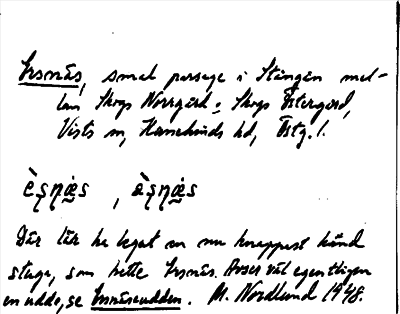 Ersnäs, smal passage i Stångån mel-
lan Skogs Norrgård o. Skogs Östergård,
Vists sn, Hanekinds hd, Östg. l.
Där lär ha legat en nu knappast känd
stuga, som hette Ersnäs. Avser väl egentligen
en udde, se Ersnäsudden. M. Nordlund 1948.